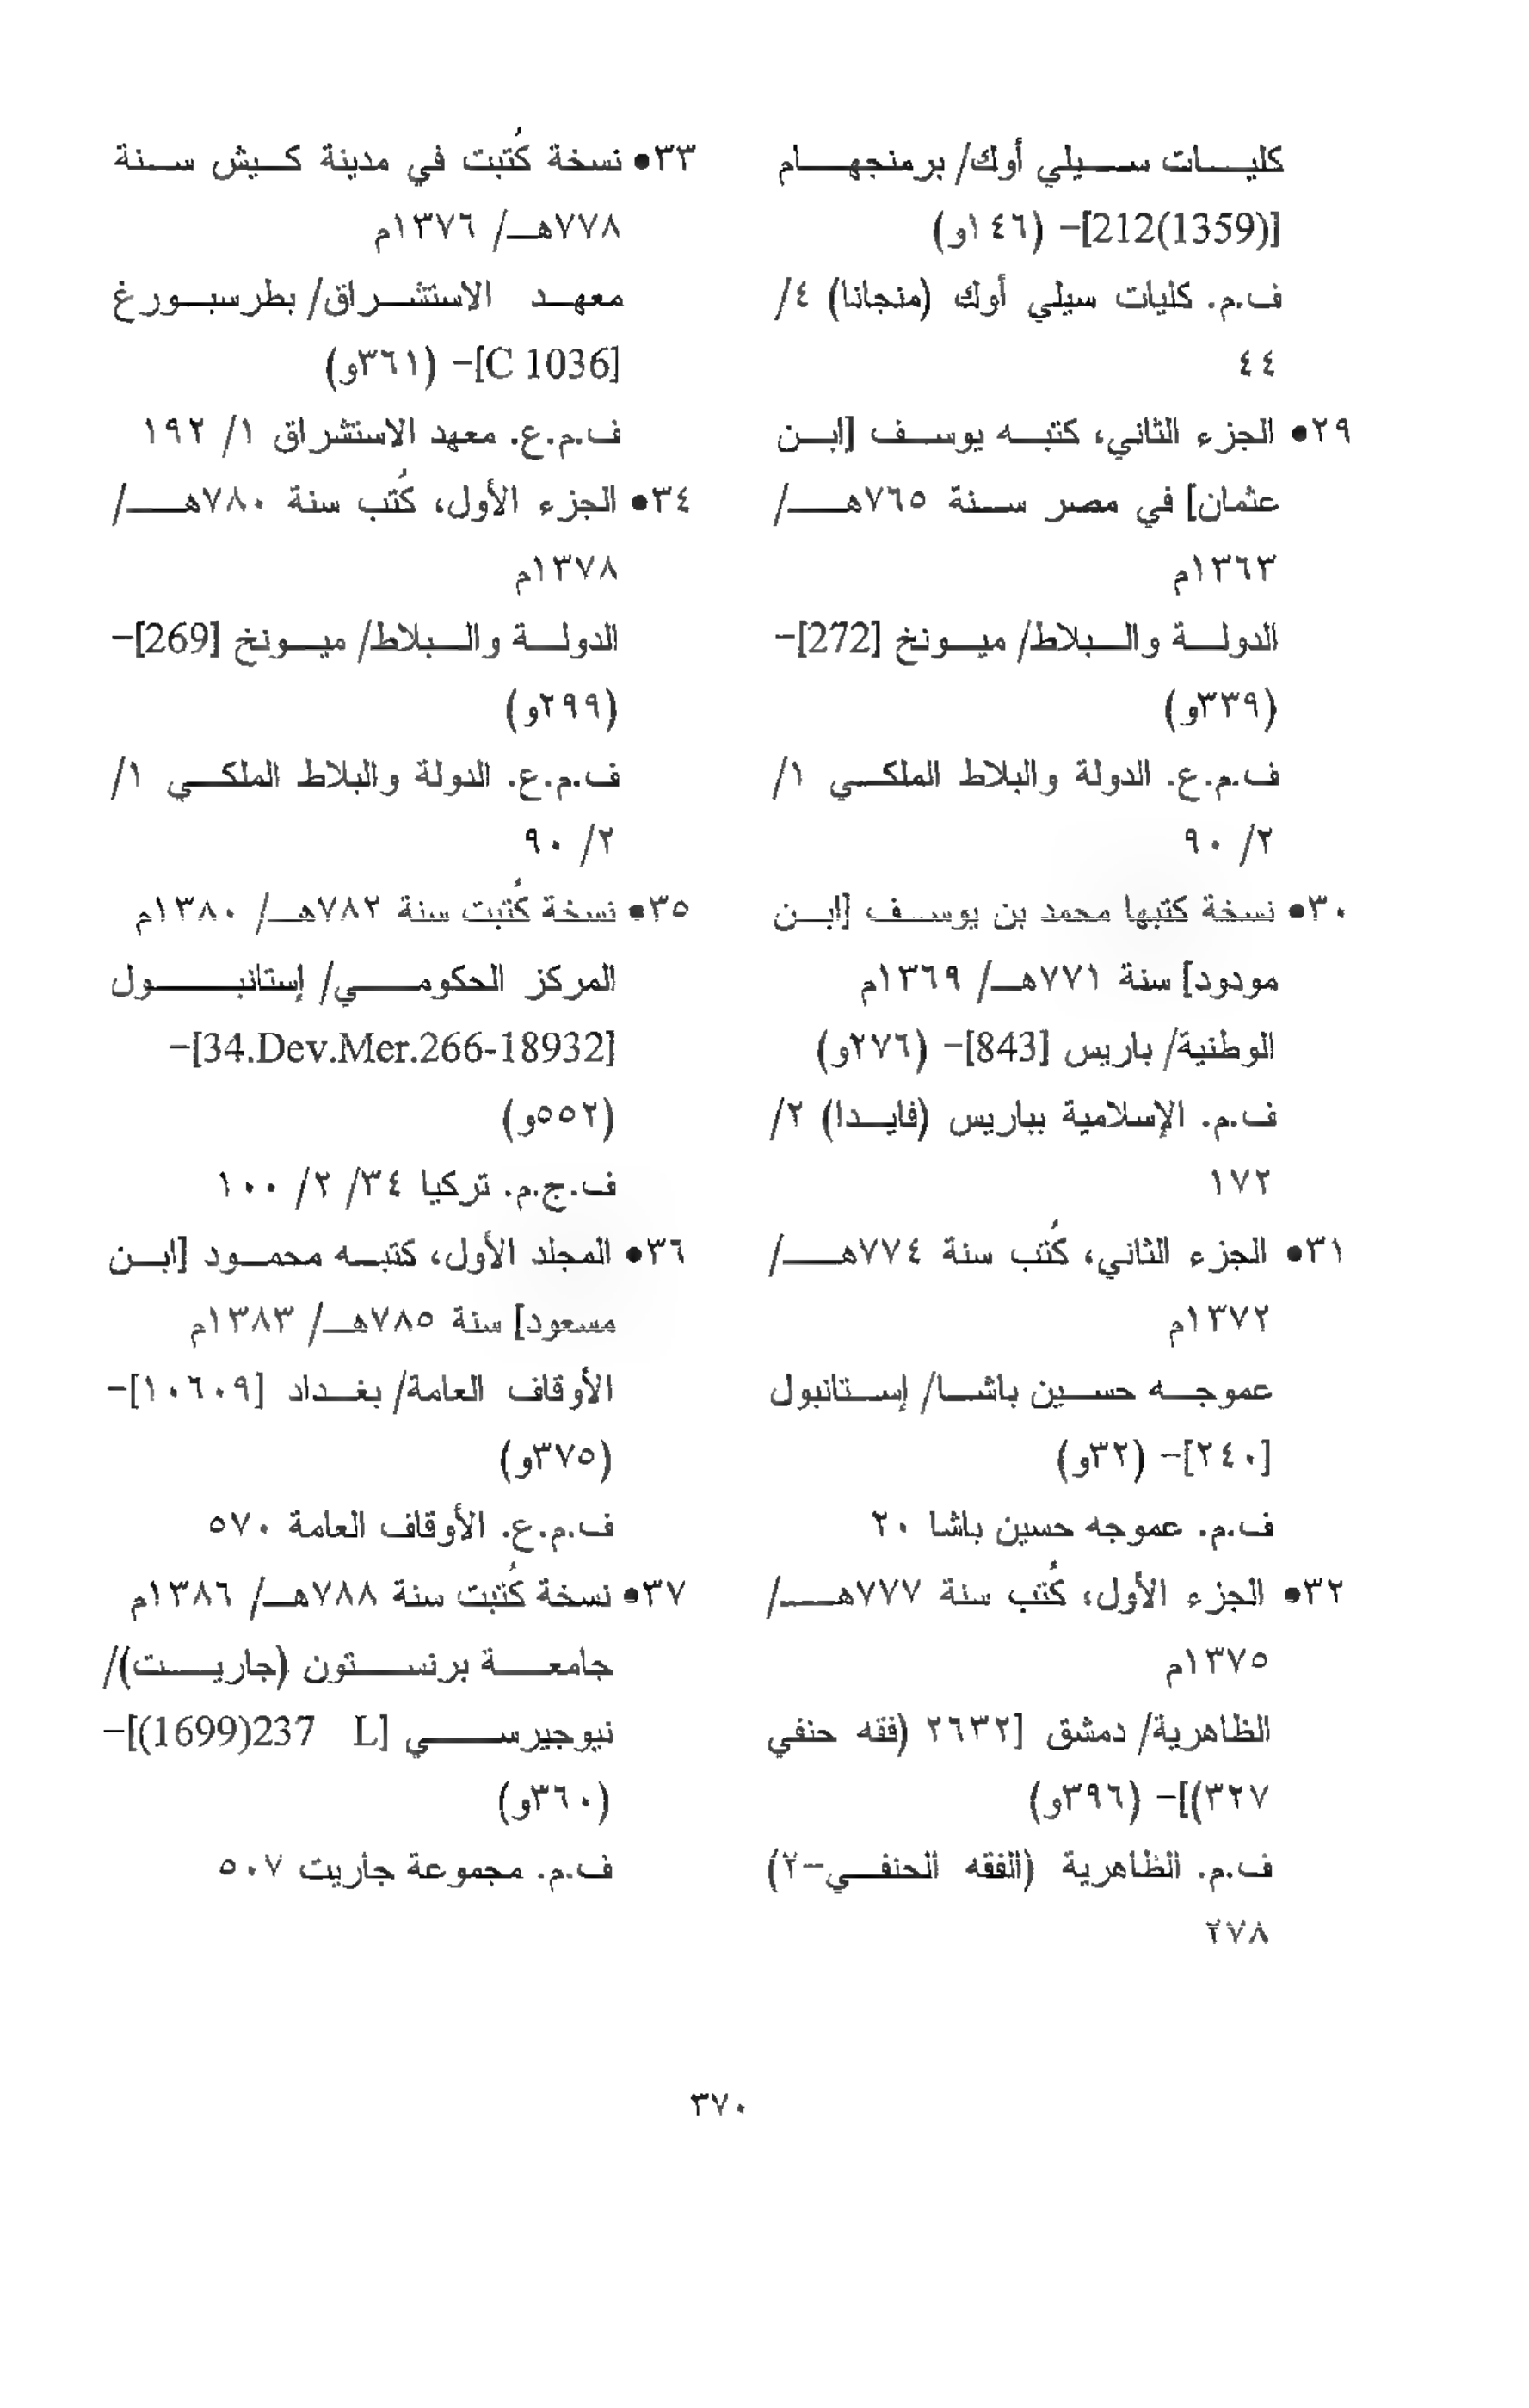 كليات سيلي أوك/ برمنجهام
[212(1359)]- (١٤٦و)
ف.م. كليات سيلي أوك (منجانا) ٤/
٤٤
٢٩• الجزء الثاني، كتبه يوسف [ابن
عثمان] في مصر سنة ٧٦٥هـ/
١٣٦٣م
الدولة والبلاط/ ميونخ [272]-
(٣٣٩و)
ف.م.ع. الدولة والبلاط الملكي ١/
٢/ ٩٠
٣٠• نسخة كتبها محمد بن يوسف [ابن
مودود] سنة ٧٧١هـ/ ١٣٦٩م
الوطنية/ باريس [843]- (٢٧٦و)
ف.م. الإسلامية بباريس (فايدا) ٢/
١٧٢
٣١• الجزء الثاني، كُتب سنة ٧٧٤هـ/
١٣٧٢م
عموجه حسين باشا/ إستانبول
[٢٤٠]- (٣٢و)
ف.م. عموجه حسين باشا ٢٠
٣٢• الجزء الأول، كُتب سنة ٧٧٧هـ/
١٣٧٥م
الظاهرية/ دمشق [٢٦٣٢ (فقه حنفي
٣٢٧)]- (٣٩٦و)
ف.م. الظاهرية (الفقه الحنفي-٢)
٢٧٨
٣٣• نسخة كُتبت في مدينة كيش سنة
٧٧٨هـ/ ١٣٧٦م
معهد الاستشراق/ بطرسبورغ
[C 1036]- (٣٦١و)
ف.م.ع. معهد الاستشراق ١/ ١٩٢
٣٤• الجزء الأول، كُتب سنة ٧٨٠هـ/
١٣٧٨م
الدولة والبلاط/ ميونخ [269]-
(٢٩٩و)
ف.م.ع. الدولة والبلاط الملكي ١/
٢/ ٩٠
٣٥• نسخة كُتبت سنة ٧٨٢هـ/ ١٣٨٠م
المركز الحكومي/ إستانبول
[34.Dev.Mer.266-18932]-
(٥٥٢و)
ف.ج.م. تركيا ٣٤/ ٢/ ١٠٠
٣٦• المجلد الأول، كتبه محمود [ابن
مسعود] سنة ٧٨٥هـ/ ١٣٨٣م
الأوقاف العامة/ بغداد [١٠٦٠٩]-
(٣٧٥و)
ف.م.ع. الأوقاف العامة ٥٧٠
٣٧• نسخة كُتبت سنة ٧٨٨هـ/ ١٣٨٦م
جامعة برنستون (جاريت)/
نيوجيرسي [237(1699) L]-
(٣٦٠و)
ف.م. مجموعة جاريت ٥٠٧
٣٧٠